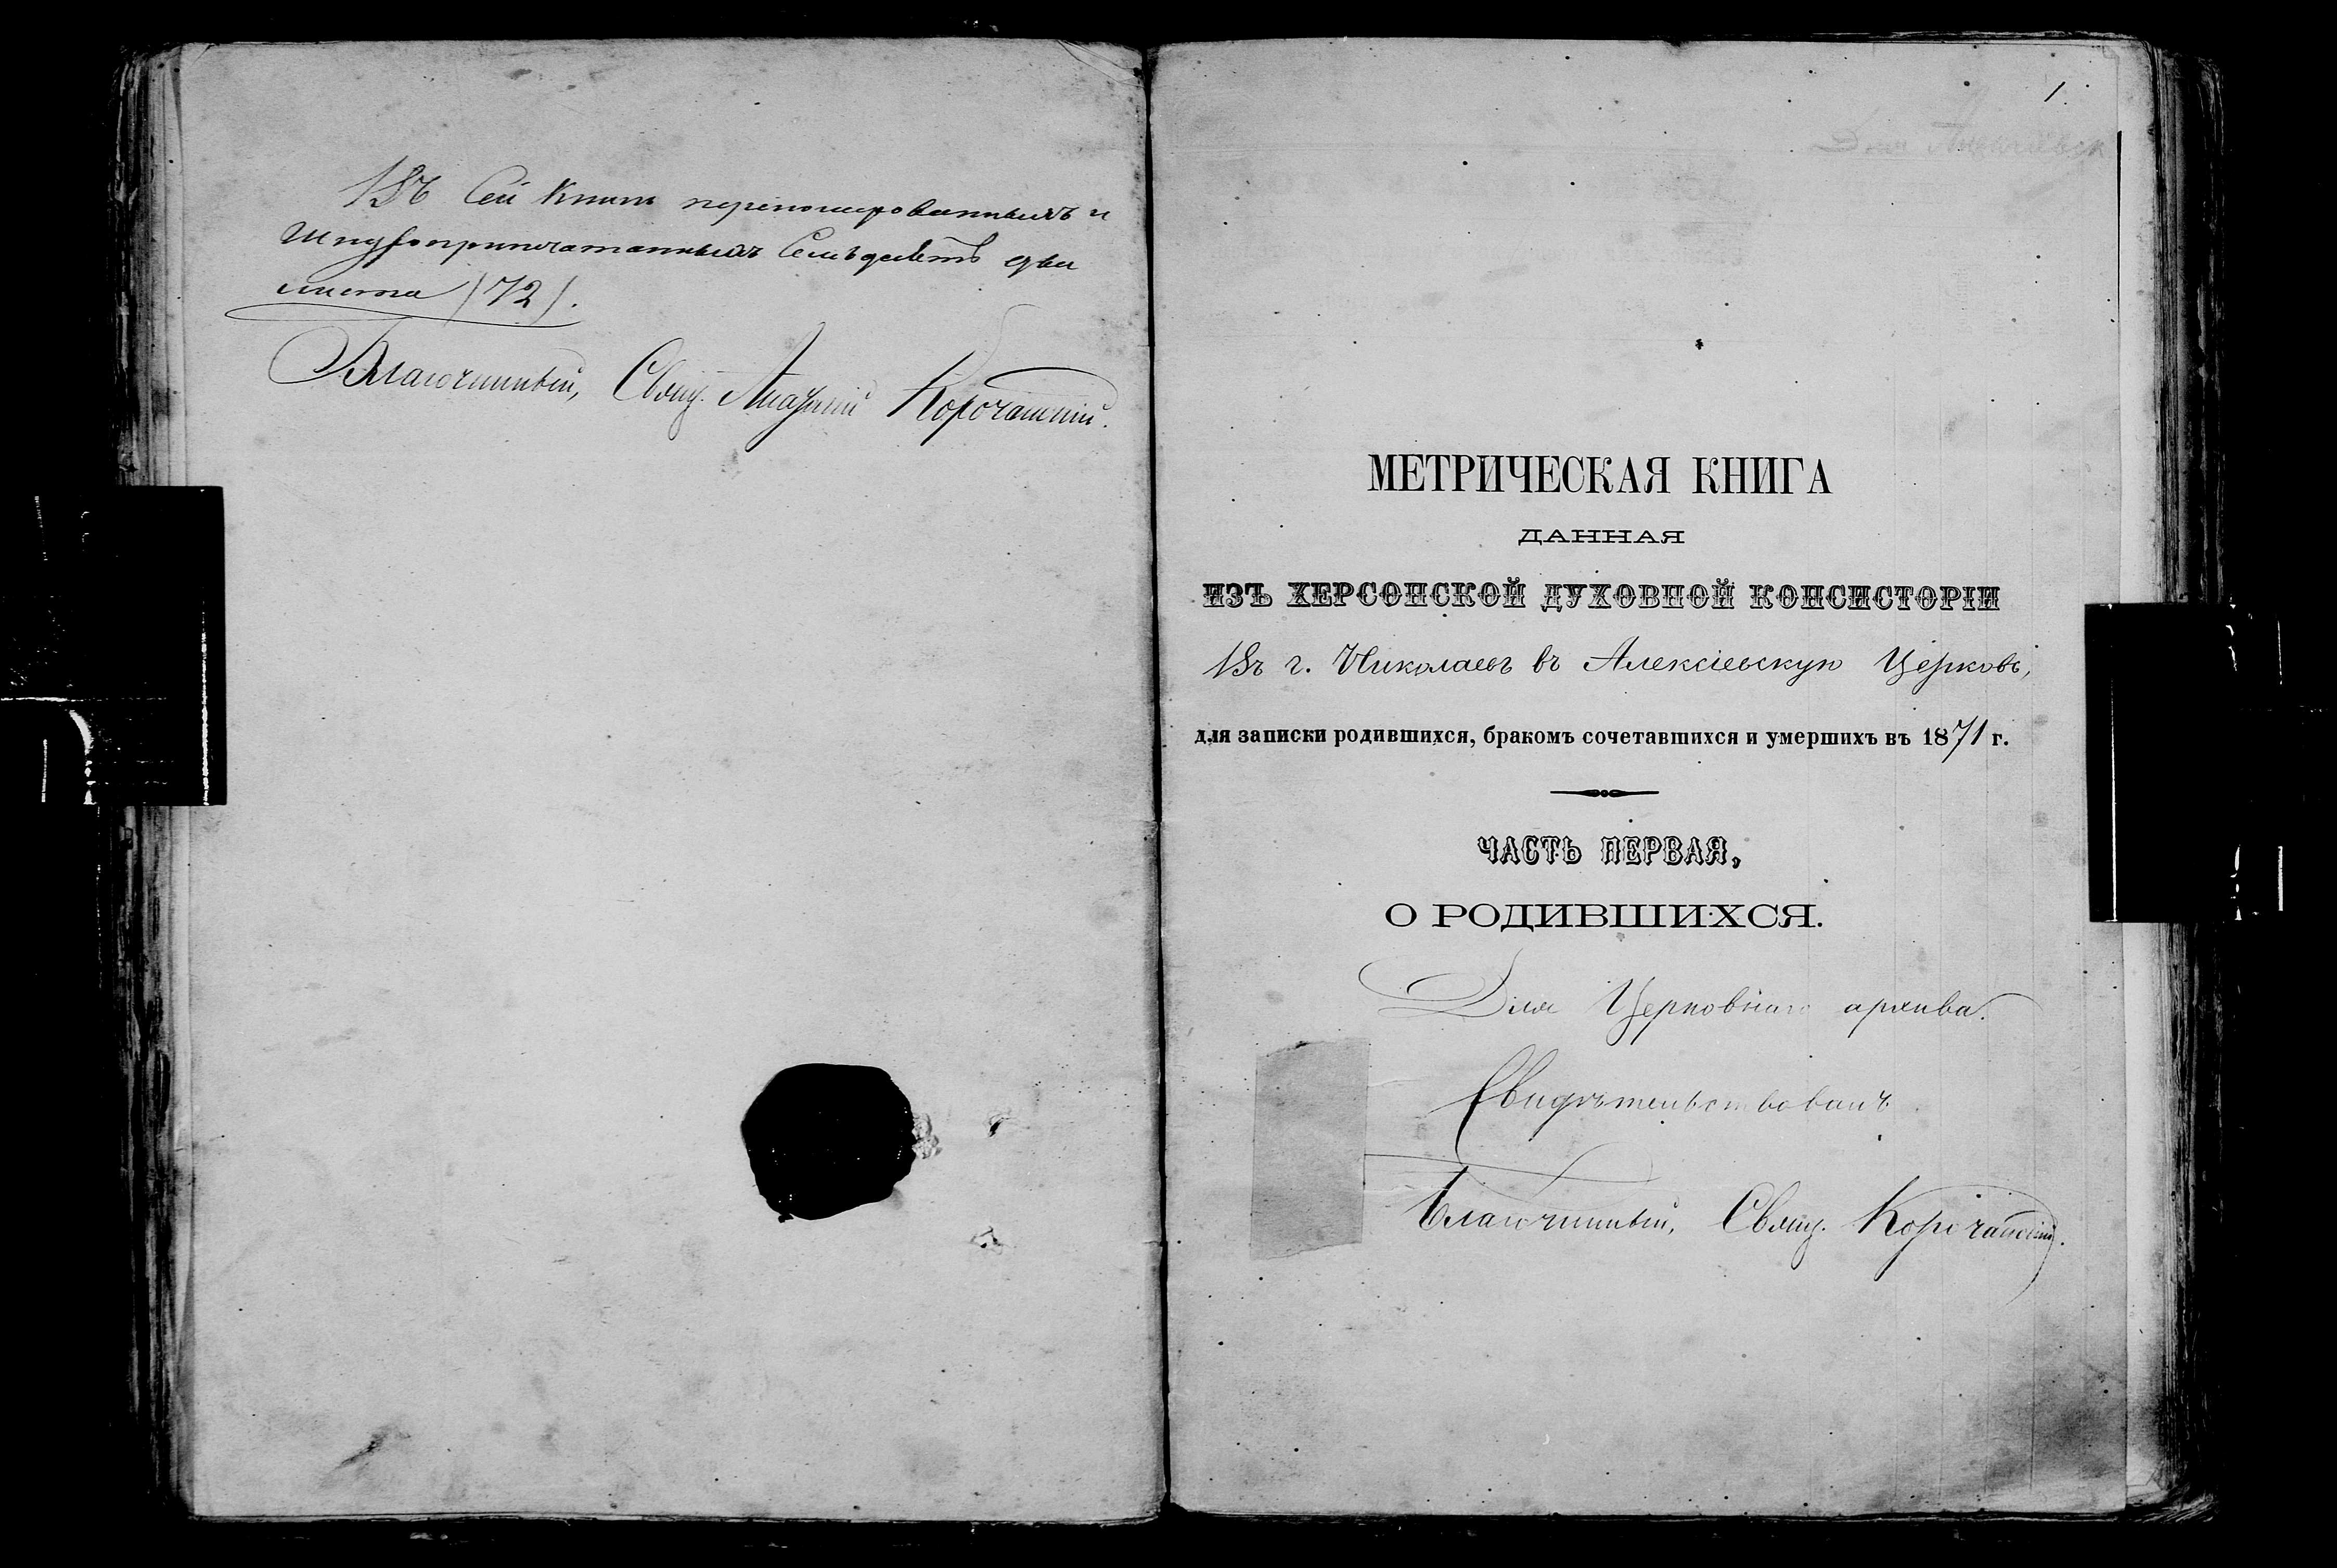 Въ Сей Книгѣ перепомерованныхъ и
Шнуроприпечатанныхъ Семьдесятъ два
листа (72).
Благочинный, Свящ. Андрей Корочанскій.
1.
МЕТРИЧЕСКАЯ КНИГА
ДАННАЯ
ИЗЪ ХЕРСОНСКОЙ ДУХОВНОЙ КОНСИСТОРІИ
Въ г. Николаевъ въ Алексіевскую Церковь,
для записки родившихся, бракомъ сочетавшихся и умершихъ въ 1871 г.
ЧАСТЬ ПЕРВАЯ,
О РОДИВШИХСЯ.
Для Церковнаго архива.
Свидѣтельствовалъ
Благочинный, Свящ. Корочанскій.